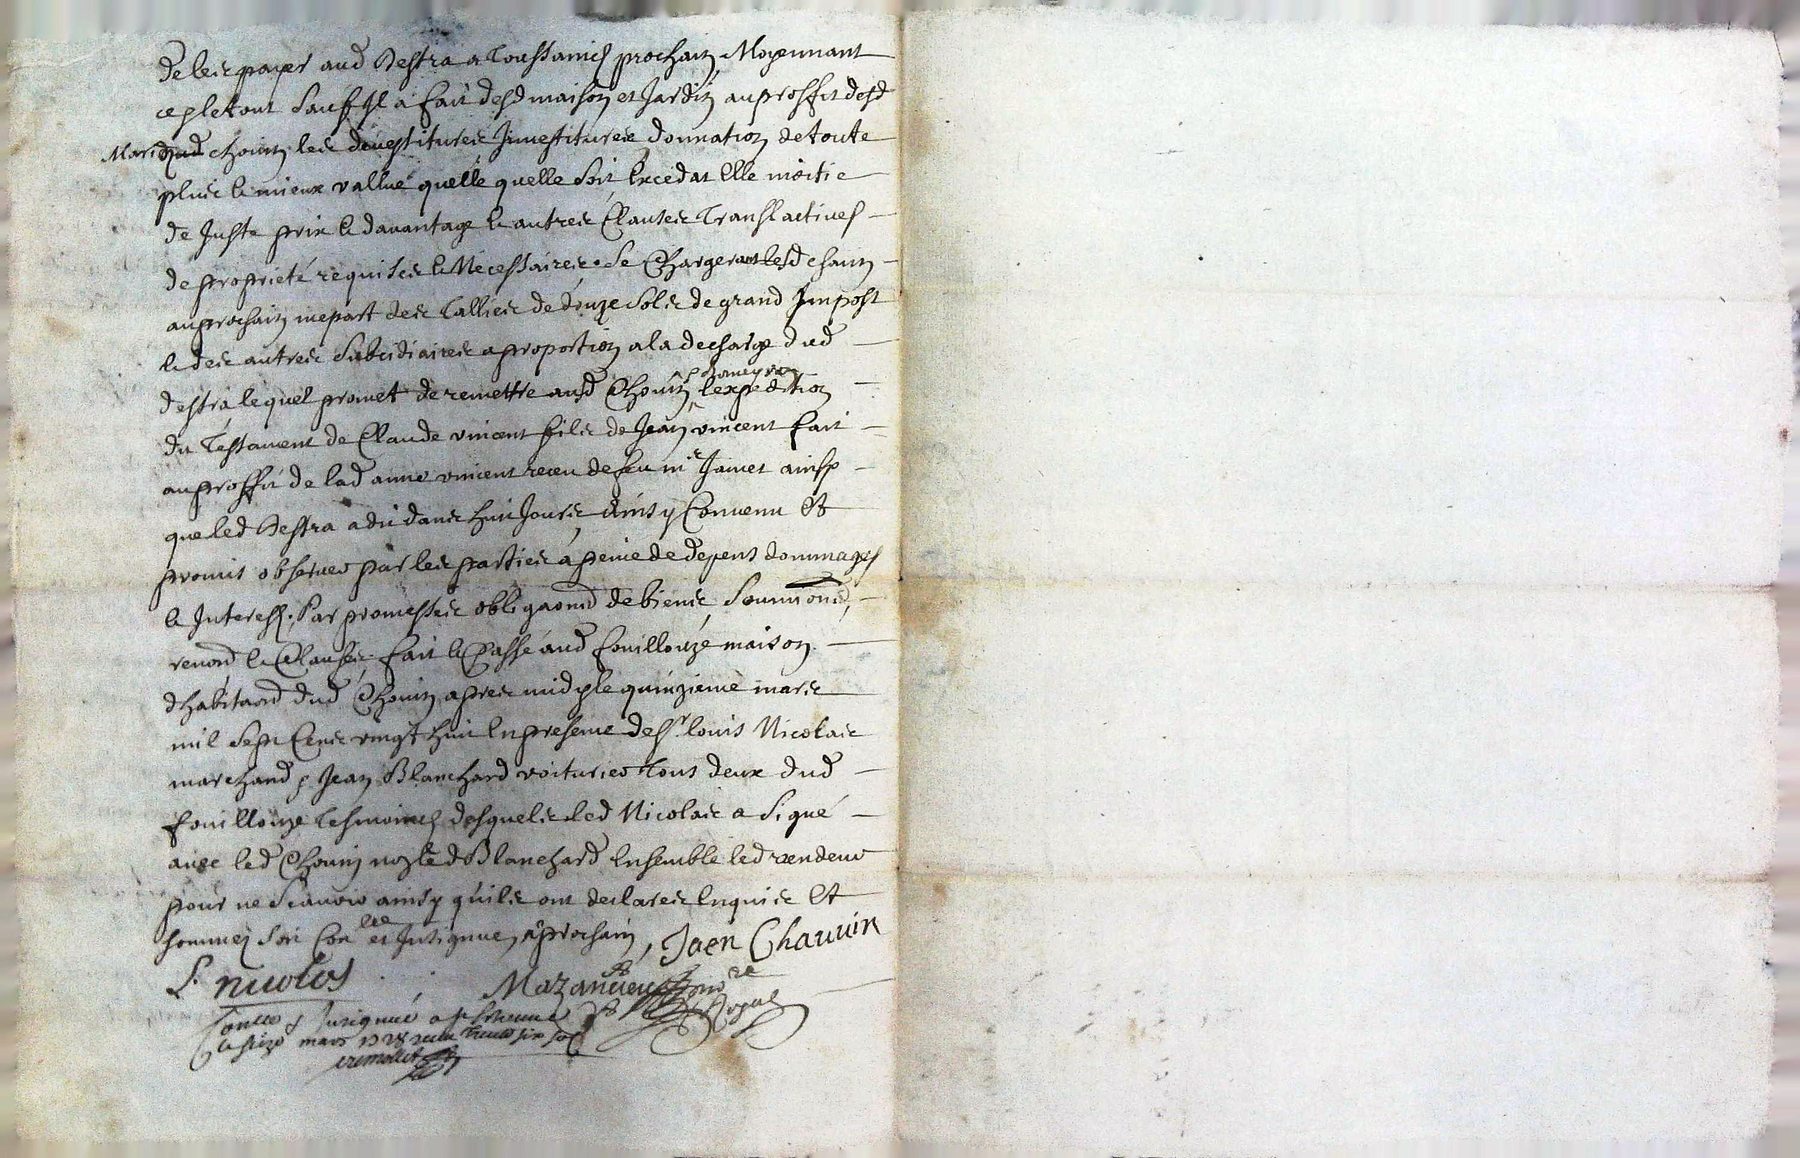 de les payer aud Destra a Toussainct prochain Moyennant
ce pletout Sauf Il a fait desd maison et Jardin au proffit desd
Mari aud Chovin les devestitures Investitures donnation de toute
plus le mieux vallue quelle quelle soit Excedat Elle moitie
de Juste prix le davantage le autres Clauses Translactives
de proprieté requises le Nécessaires. Se Chargeront lesd chovin
au prochain mepart des Tallies de douze sols de grand Impost
le des autres Subsidiaires a proportion a la decharge dud
destra lequel promet de remettre ausd Chovin lexpedition
du Testament de Claude vincent fils de Jean vincent fait
au proffit de lad anne vincent receu de feu mr Jamet ainsy
que led Destra a dit dans huit Jours ainsy Convenu Et
promis observer par les parties a peine de depens dommages
le Interest. Par promesses obligaond de biens Soumiond,
renond le Clauses fait le Passé aud fouillouze maison
dhabitaond dud Chovin apres midy le quinzieme mars
mil Sept Cens vingt huit En presence de sr louis Nicolas
marchand & Jean Blanchard voiturier Tous deux dud
fouillouze Tesmoincts desquels led Nicolas a Signé
avec led Chovin non led Blanchard Ensemble led vendeur
pour ne Scavoir ainsy quils ont declares Enquis Et
sommez Soit Con lle et Insignue, aprochain, Jaen Chauvin
L. nicolas Mazancieux no re Royal
Contlle & Insignué a st Etienne
le seize mars 1728 receu trente six sols